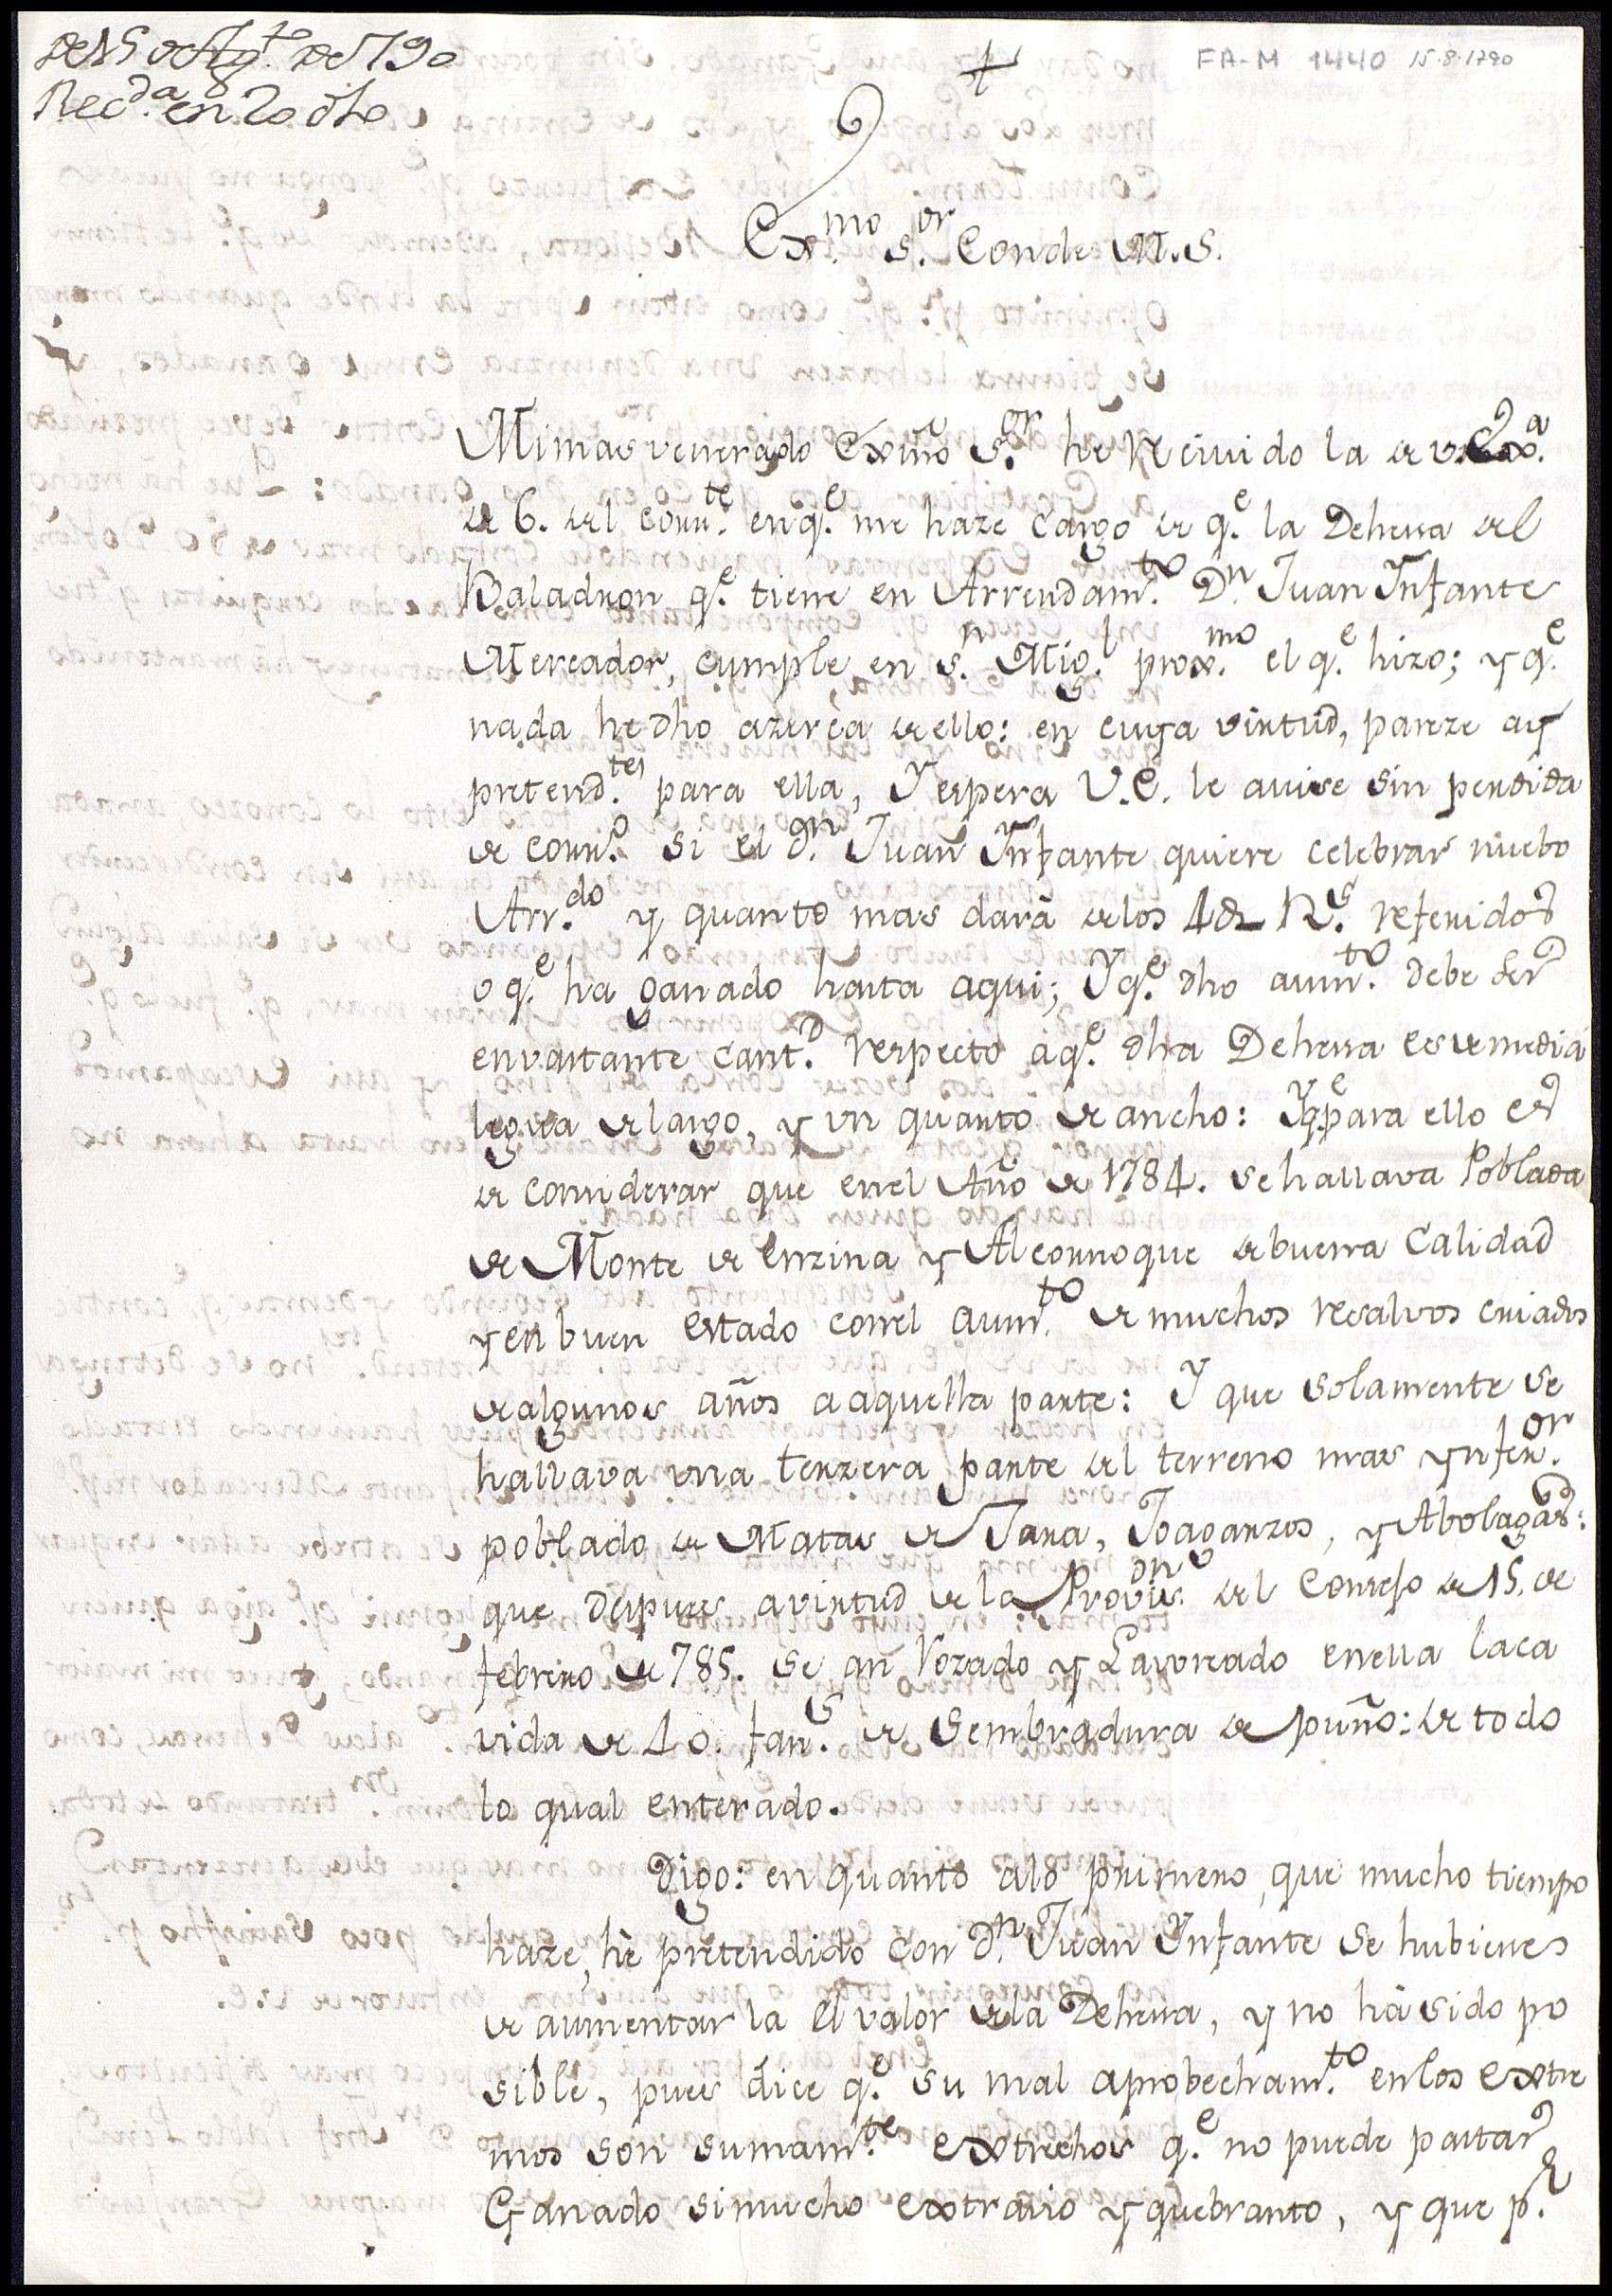 de 15 de Ag.to de 790
Rec.da en 20 dho
FA-M 1440 15.8.1790
Ex.mo S.or Conde M.S.
Mi mas venerado Exmo S.or he Recivido la de v. Exa.
de 6. del corr.te en q.e me haze cargo de q.e la Dehesa del
Baladron q.e tiene en Arrendam.to D.n Juan Infante
Mercador, cumple en S.n Mig.l prox.mo el q.e hizo; y q.e
nada he dho azerca de ello: en cuya virtud, pareze ay
pretend.tes para ella, Y espera V.E. le avise sin perdida
de corr.o si el D.n Juan Ynfante quiere celebrar nuebo
Arr.do y quanto mas darà de los 4 R.s referidos
o q.e ha ganado hasta aqui; Y q.e dho aum.to debe ser
en vastante cant.d respecto àq.e dha Dehesa es de media
legua de largo, y un quarto de ancho: Y q.e para ello es
de considerar que en el Año de 1784. se hallava Poblada
de Monte de Enzina y Alcornoque de buena Calidad
y en buen estado con el aum.to de muchos resalvos criados
de algunos años a aquella parte: Y que solamente se
hallava una terzera parte del terreno mas ynfer.or
poblado de Matas de Jara, Joagarzos, y Abolagas:
que despues a virtud de la Provis.on del Consejo de 15. de
febrero de 785. se an Rozado y Lavoreado en ella la ca
vida de 40. fan.s de Sembradura de puño: de todo
lo qual enterado.
Digo: en quanto alo primero, que mucho tiempo
haze, hè pretendido con D.n Juan Ynfante se hubiese
de aumentar la el valor dela Dehesa, y no hà sido po
sible, pues dice q.e su mal aprobecham.to en los extre
mos son sumam.te extrechos q.e no puede pastar
Ganado si mucho extravio y quebranto, y que p.r